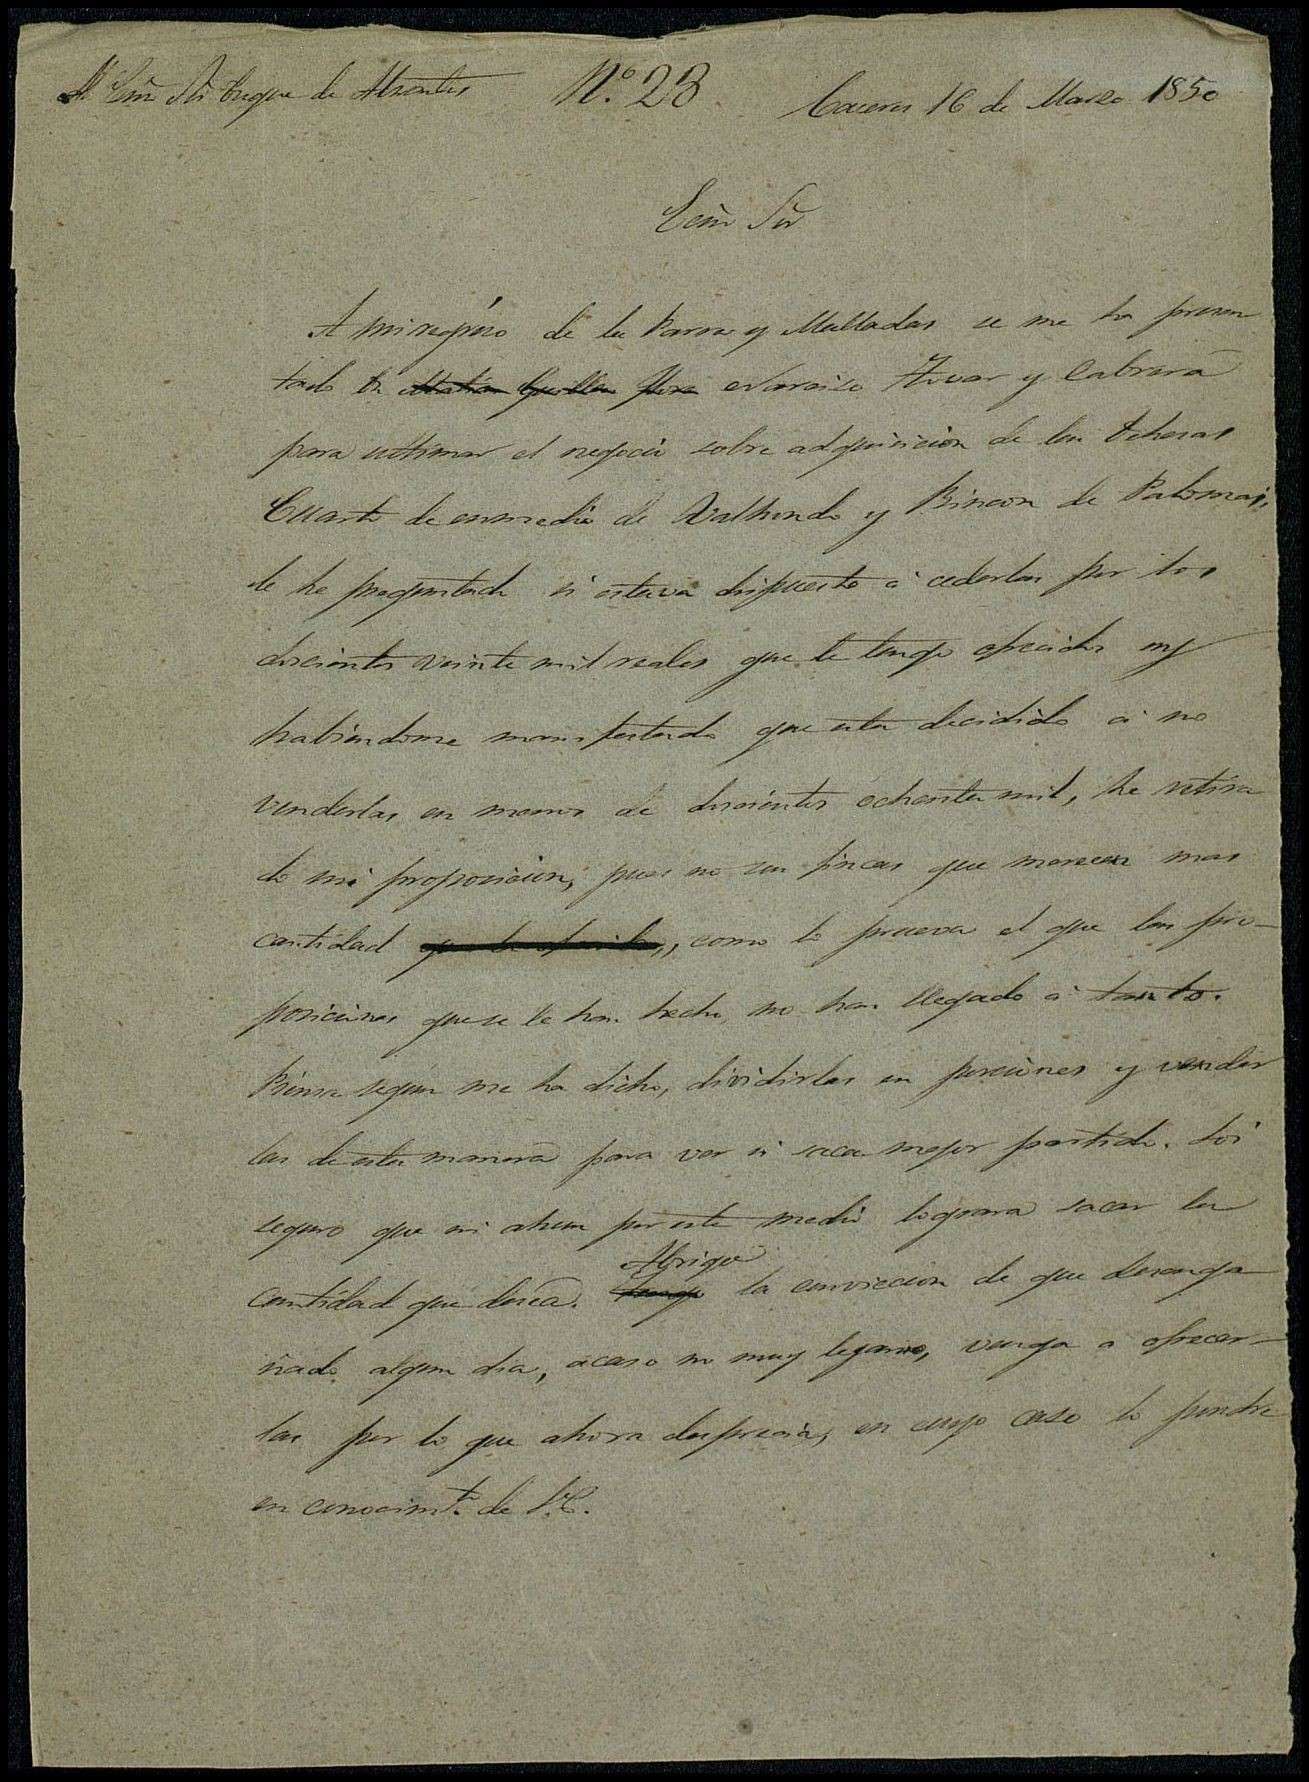 Excmo Sr Duque de Abrantes Nº. 23 Caceres 16 de Marzo 1850
Excmo Sor
A mi regreso de la Parra y Malladas se me ha presen
tado Dn Narciso Tovar y Cabrera
para ultimar el negocio sobre adquisicion de las dehesas
Cuarto de enmedio de Valhondo y Rincon de Palomas,
le he preguntado si estava dispuesto á cederlas por los
doscientos veinte mil reales que le tengo ofrecidos y
habiendome manifestado que esta decidido á no
venderlas en menos de doscientos ochenta mil, he retira
do mi proposicion, pues no son fincas que merecen mas
cantidad como lo prueva el que las pro-
posiciones que se le han hecho, no han llegado á tanto.
Piensa segun me ha dicho, dividirlas en porciones y vender
las de esta manera para ver si saca mejor partido. Soi
seguro que ni ahun por este medio lograra sacar la
cantidad que desea. Abrigo la conviccion de que desenga
ñado algun dia, acaso no muy lejano, venga a ofrecer-
las por lo que ahora desprecia, en cuyo caso lo pondre
en conocimto. de V.E.